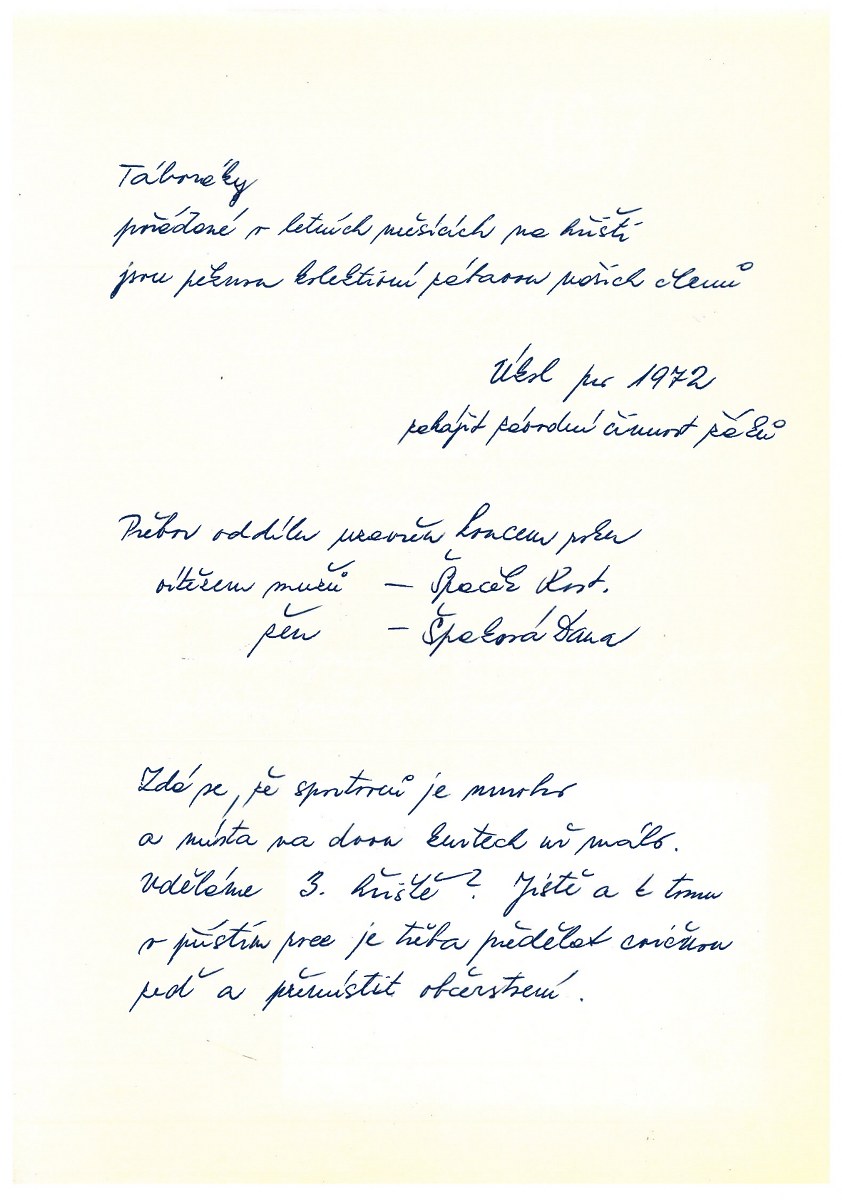 Táboráky
pořádané v letních měsících na hřišti
jsou pěknou kolektivní zábavou našich členů
Úkol pro 1972
zahájit závodní činnost žáků
Přebor oddílu uzavřen koncem roku
vítězem mužů – Špaček Rost.
žen – Špaková Dana
Zdá se, že sportovců je mnoho
a místa na dvou kurtech už málo.
Uděláme 3. hřiště? Jistě a k tomu
v příštím roce je třeba předělat cvičnou
zeď a přemístit občerstvení.